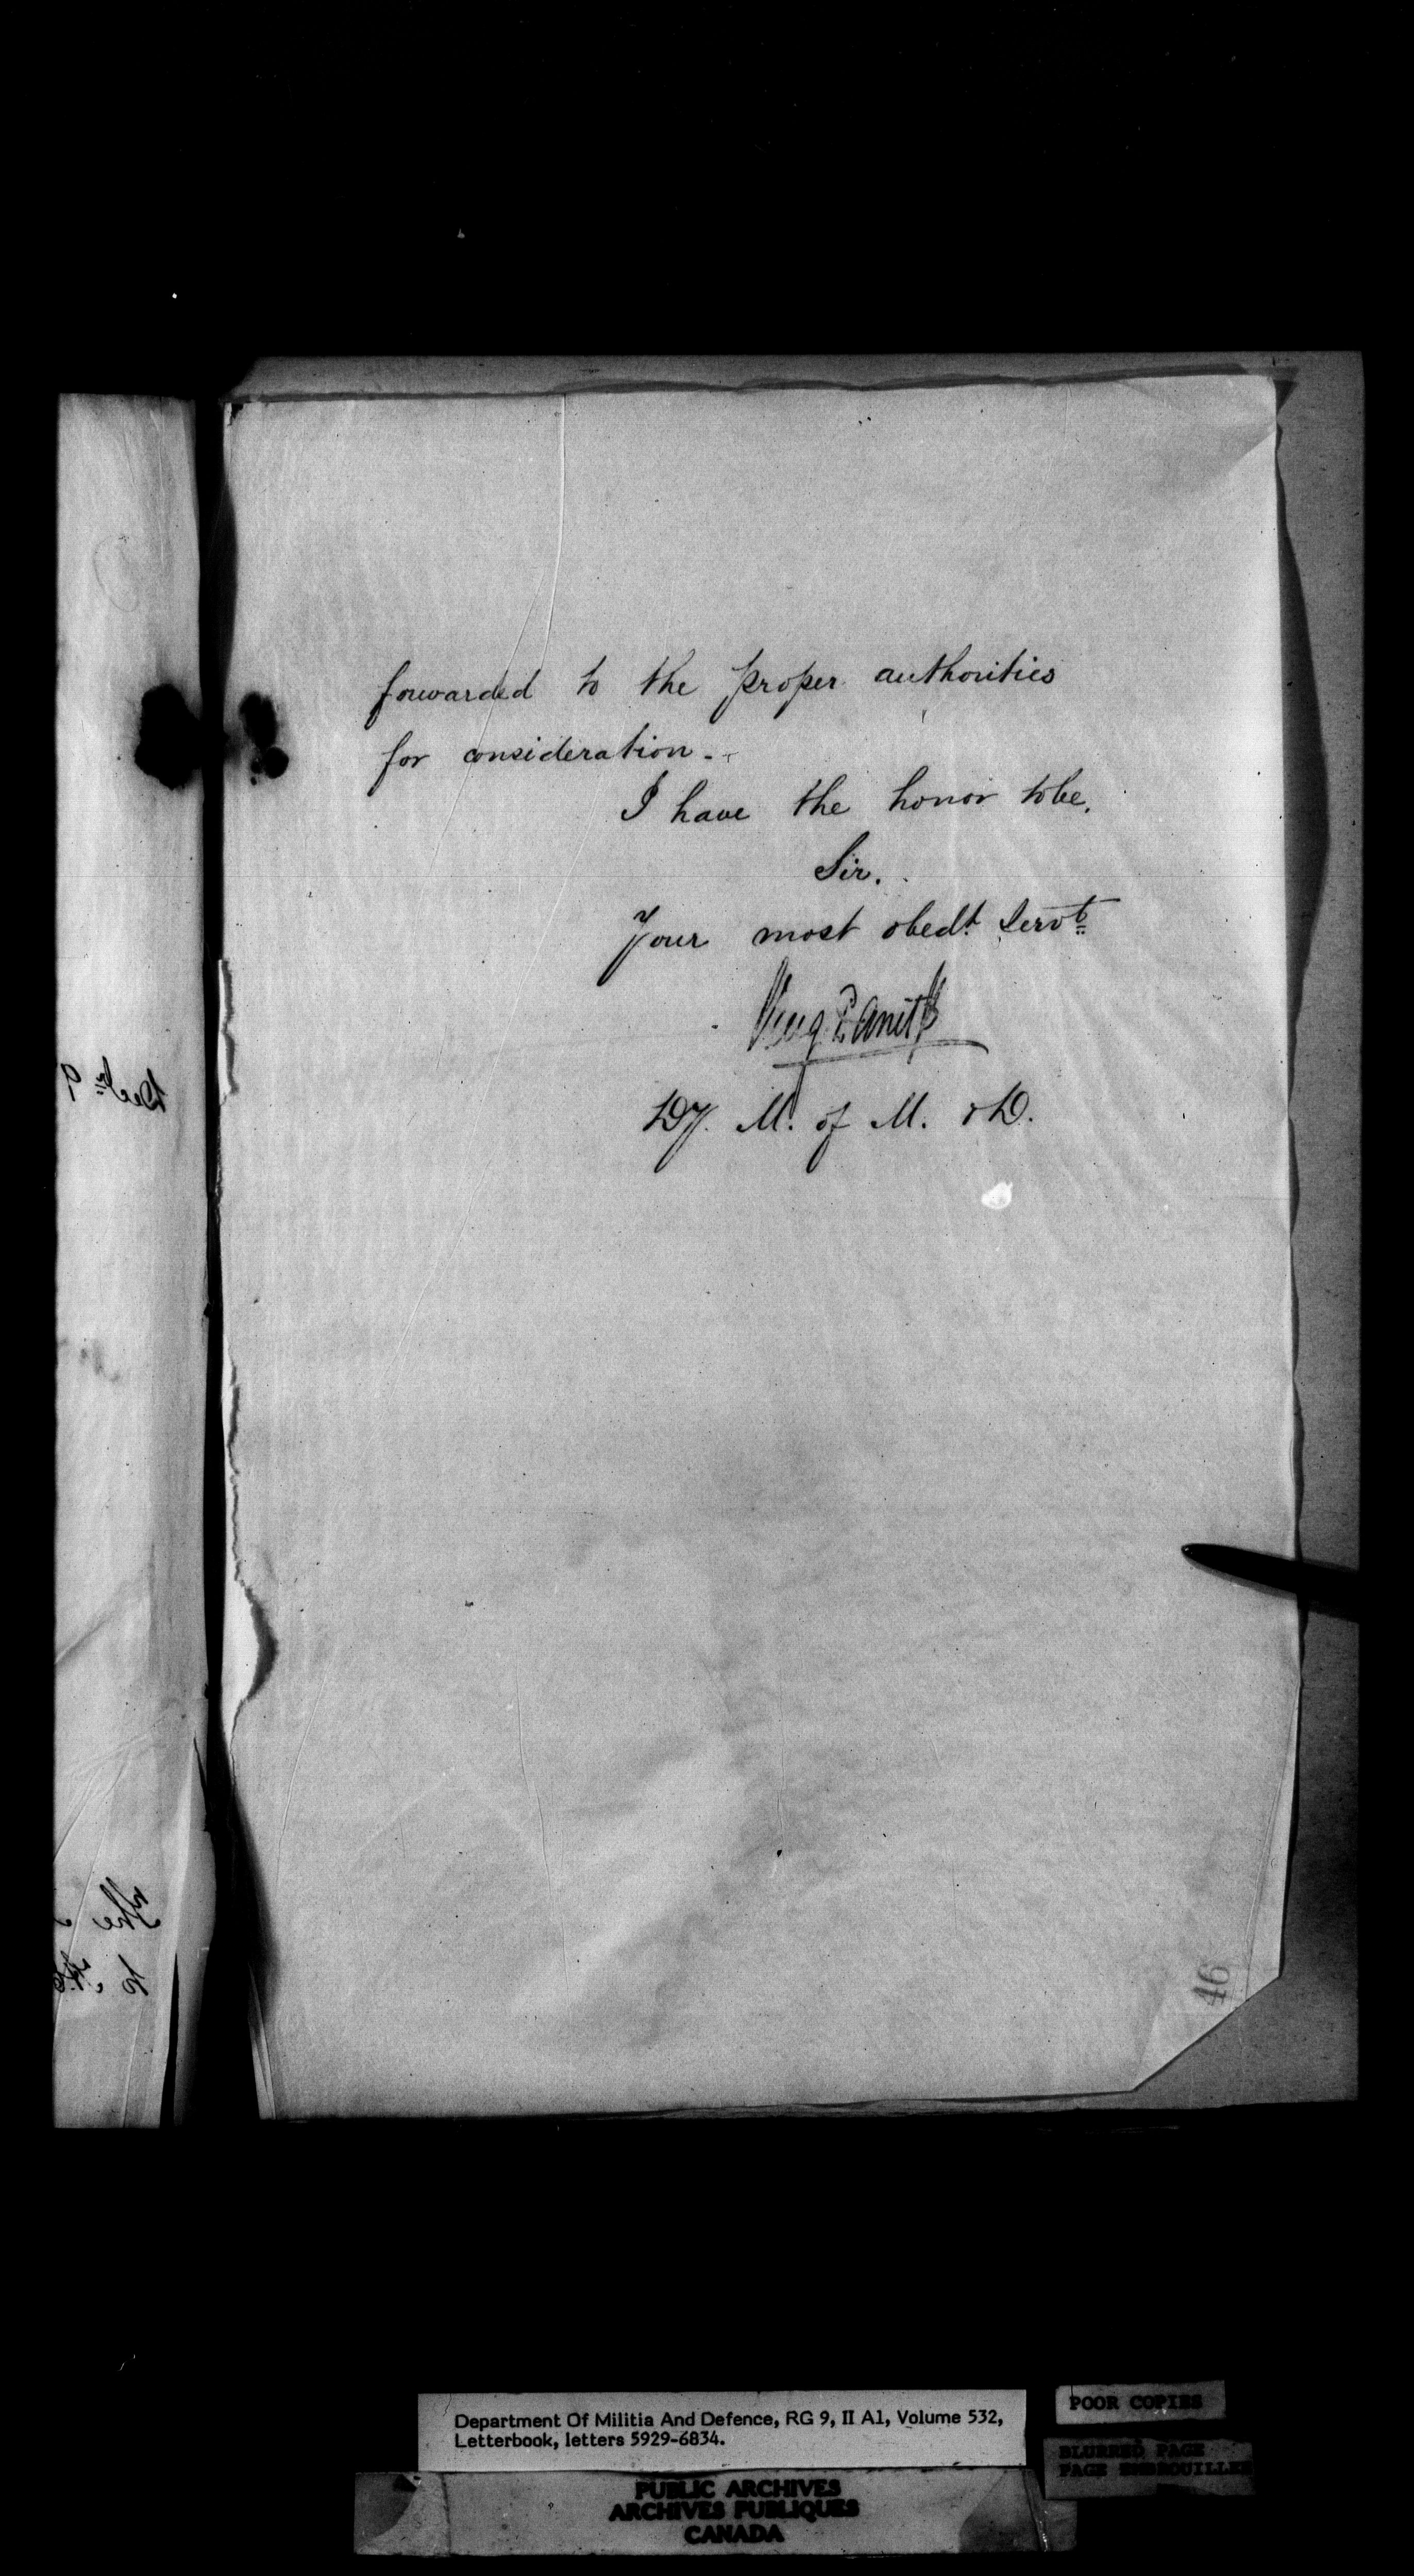 forwarded to the proper authorities
for consideration.
I have the honor to be,
Sir.
Your most obedt. Servt
Dy. M. of M. & D.
46
Decr 9
The
to
Department Of Militia And Defence, RG 9, II A1, Volume 532,
Letterbook, letters 5929-6834.
POOR COPIES
BLURRED PAGE
PAGE EMBROUILLEE
PUBLIC ARCHIVES
ARCHIVES PUBLIQUES
CANADA